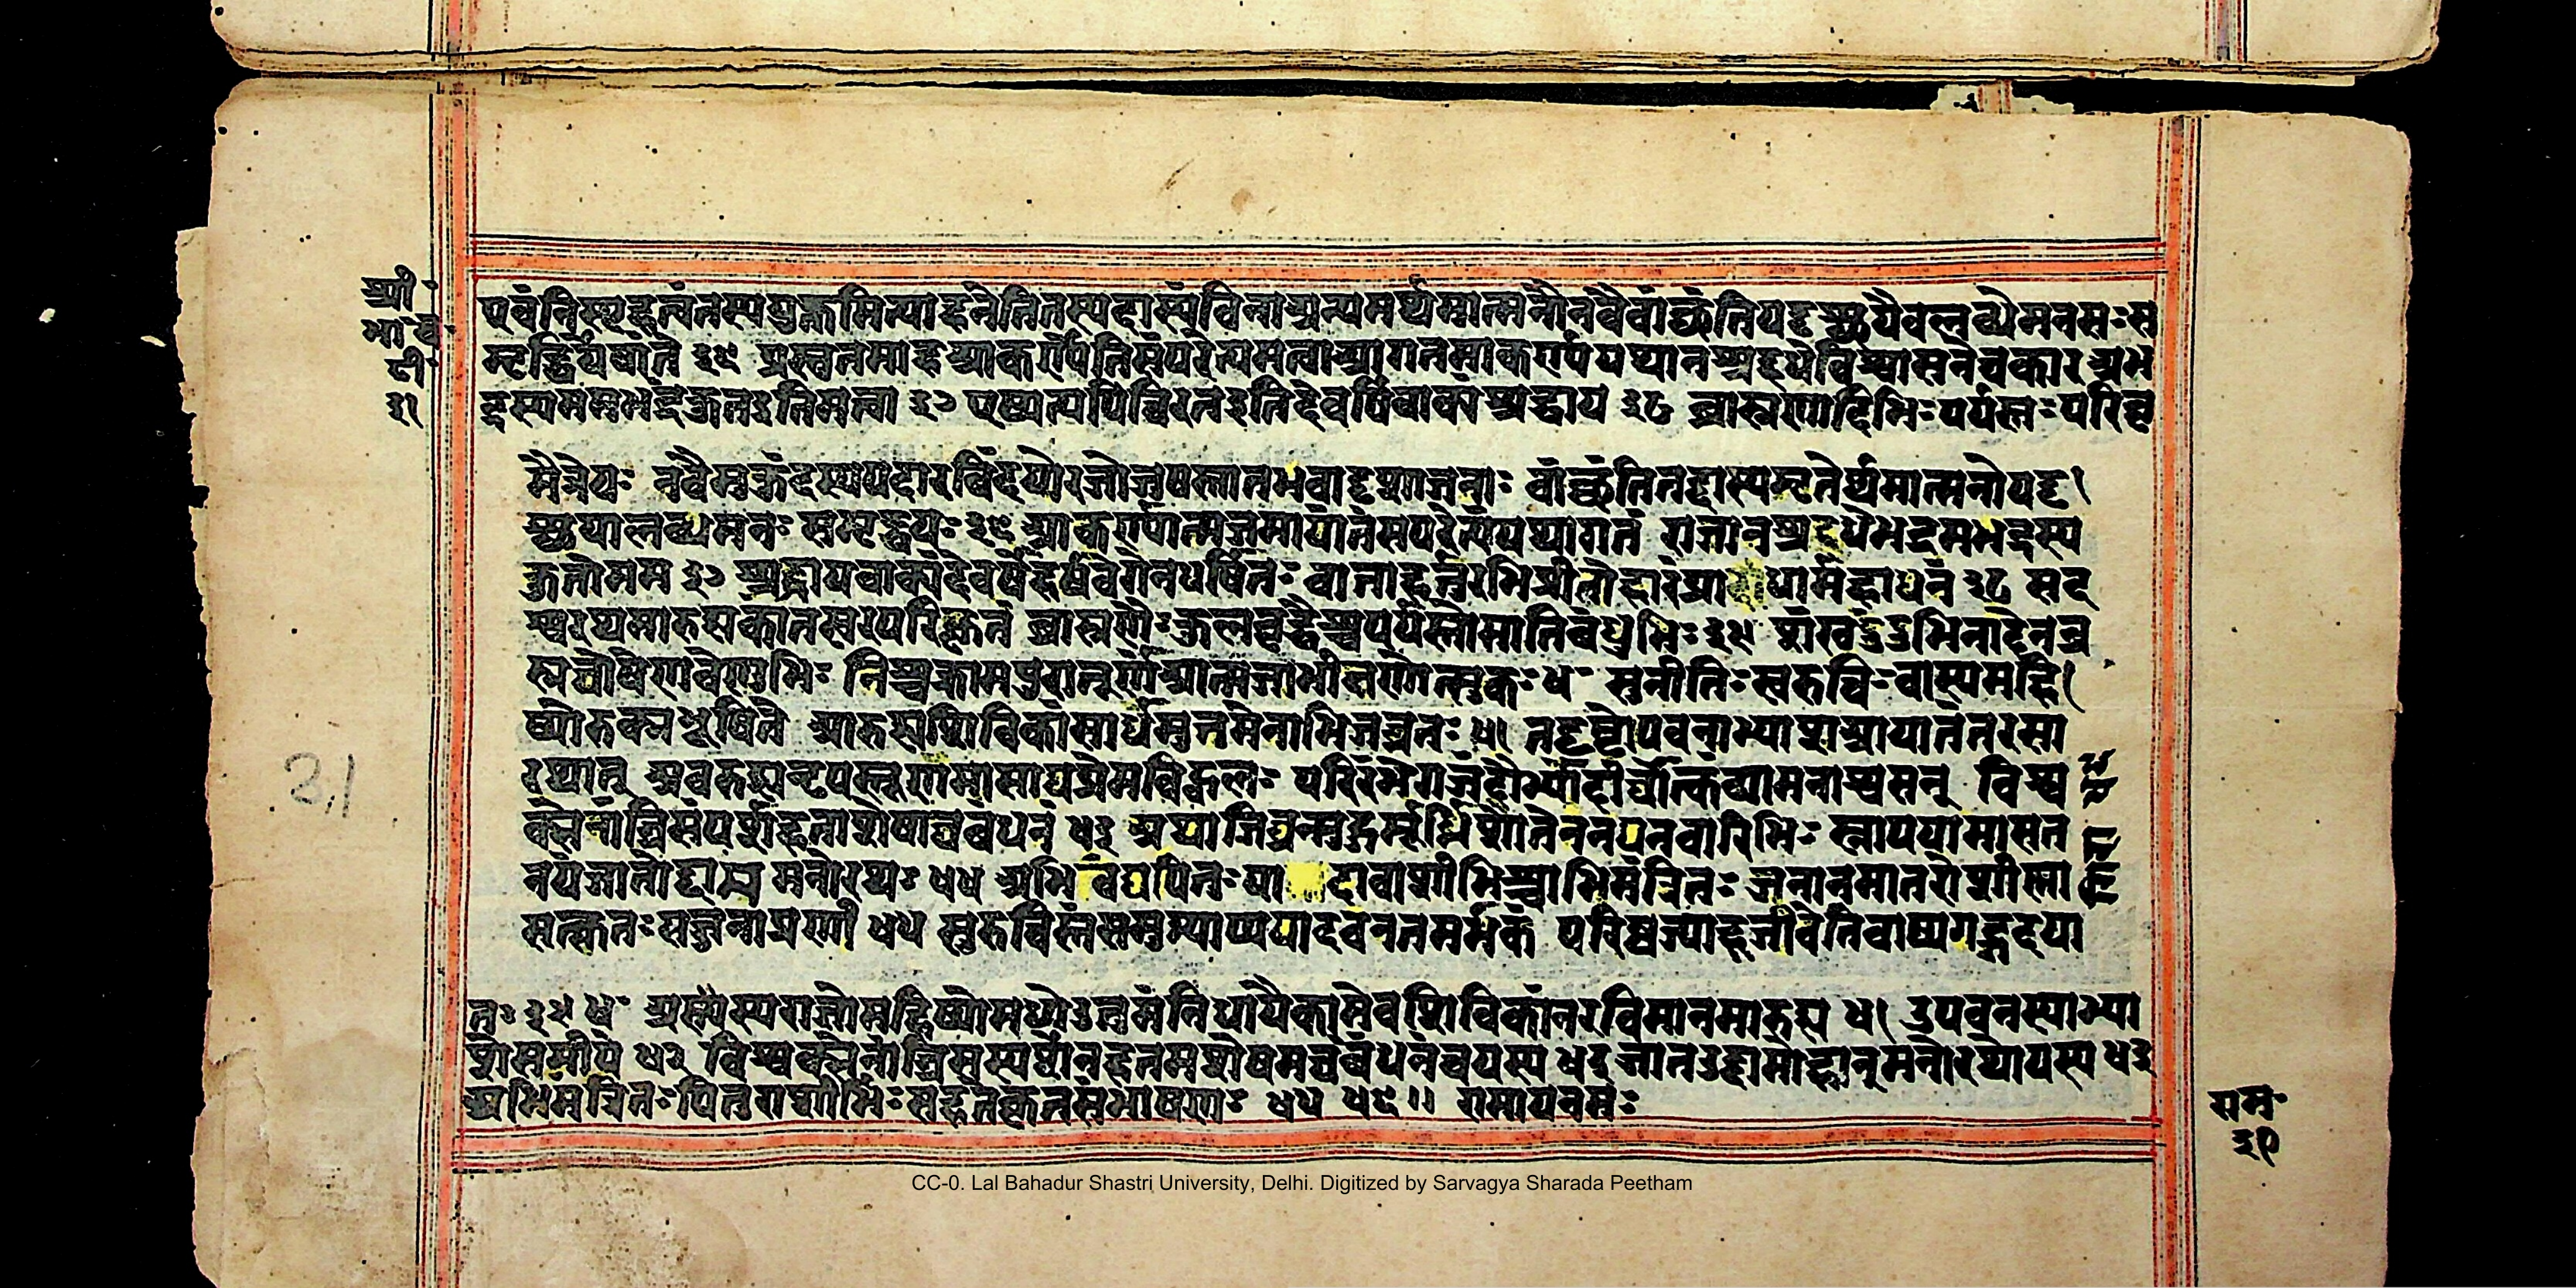 श्री
भा च
टी
३१
एवं निस्पृहत्वं तस्य युक्तमित्याह न इति तस्य दास्यं विना अन्यमर्थमात्मनो न वै वांछंति यदृच्छयैव लब्ध्ये मनसः स
मृद्धिर्येषां ते ३६ प्रस्तुतमाह आकर्ण्येति संपरेत्य मृत्वा आगतमाकर्ण्य यथा न श्रद्दधे विश्वासं न चकार अभ
द्रस्य मम भद्रं कुत इति मत्वा ३७ एष्यत्यपि चिरत इति देवर्षिवाक्यं श्रद्धाय ३८ ब्राह्मणादिभिः पर्यस्तः परिवृ
मैत्रेयः न वै मुकुंदस्य पदारविंदयो रजोजुषस्तात भवादृशा जनाः वांछंति तद्दास्यमृतेर्थमात्मनो यदृ
च्छया लब्धमनः समृद्धयः ३६ आकर्ण्यात्मजमायांतं संपरेत्य यथागतं राजा न श्रद्दधे भद्रमभद्रस्य
कुतो मम ३७ श्रद्धाय वाक्यं देवर्षेर्हर्षवेगेन धर्षितः वार्ताहर्तुरभिप्रीतो हारं प्रादा धार्महाधनं ३८ सद
श्वं रथमारुह्य कार्तस्वरपरिष्कृतं ब्राह्मणैः कुलवृद्धैश्च पर्यस्तोमातिबंधुभिः ३९ शंखदुंदुभिनादेन ब्र
ह्मघोषेण वेणुभिः निश्चक्राम पुरात्तूर्णं आत्मजाभीक्षणोत्सुकः ४० सुनीतिः सुरुचिः चास्य महि
ष्यौ रुक्मभूषिते आरुह्य शिविकां सार्धमुत्तमेनाभिजग्मतुः ४१ तं दृष्ट्वोपवनाभ्याश आयांतं तरसा
रथात् अवरुह्य नृपस्तूर्णमासाद्य प्रेमविह्वलः परिरेभे गजं दोर्भ्यां दीर्घोत्कंठमनाश्वसन् विश्व
क्सेनांघ्रिसंपर्शहताशेषाघबंधनं ४३ अथाजिघ्रन्मुहुर्मूर्ध्नि शीतैर्नयनवारिभिः स्नापयामास त
नयं जातोद्दाम मनोरथः ४४ अभिवंद्य पितुः पा दावाशीभिश्चाभिमंत्रितः ननाम मातरौ शीर्ष्णा
सत्कृतः सज्जनाग्रणीः ४५ सुरुचिस्तं समुत्थाप्य पादावनतमर्भकं परिष्वज्याह जीवेति बाष्पगद्गदया
तः ३९ ४० अस्य राज्ञो महिष्यौ मध्ये उत्तमं निधायैकामेव शिविकां नरविमानमारुह्य ४१ उपवनस्याभ्या
शे समीपे ४२ विश्वक्सेनांघ्रिसंस्पर्शेन हतमशेषमघं बंधनं च यस्य ४३ जात उद्दामो महान् मनोरथो यस्य ४४
अभिमंत्रितः पितुराशीर्भिः सह तत्कृतसंभाषणः ४५ ४६ ॥ रामाय नमः
राम
३१
CC-0. Lal Bahadur Shastri University, Delhi. Digitized by Sarvagya Sharada Peetham